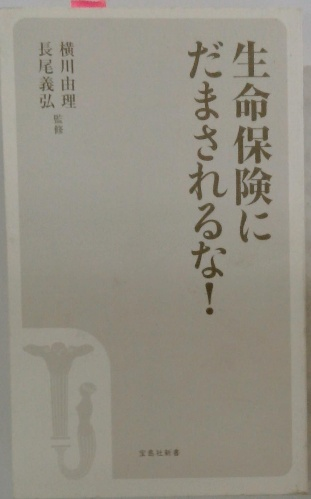 生命保険に
だまされるな!
横川由理
長尾義弘
監修
宝島社新書